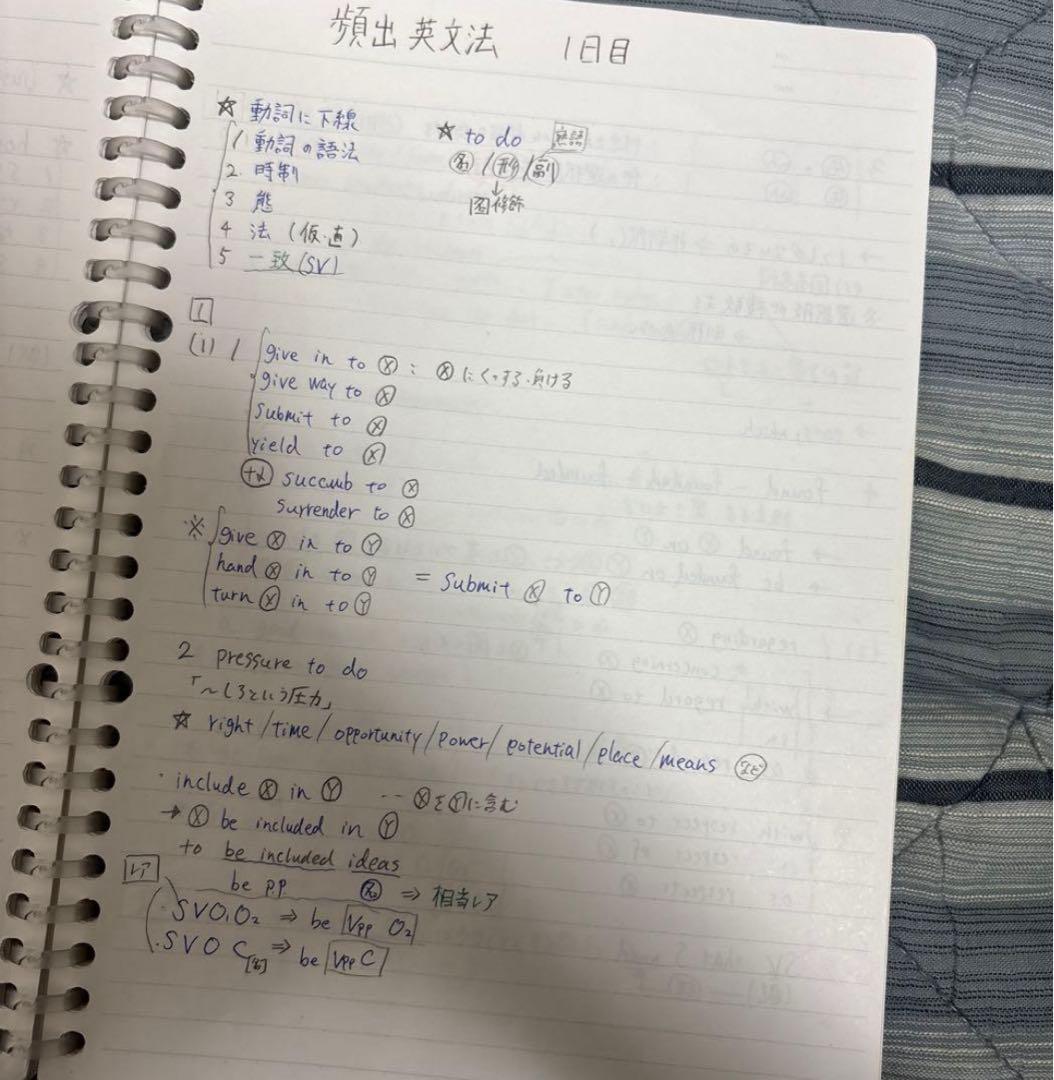 頻出英文法 1日目
☆ 動詞に下線
1 動詞の語法
2. 時制
3 態
4 法 (仮・直)
5 一致(SV)
☆ to do 熟語
名/形/副
↓
図修飾
1
(1) 1 give in to Ⓧ : Ⓧにくっする・負ける
give way to Ⓧ
submit to Ⓧ
yield to Ⓧ
succumb to Ⓧ
surrender to Ⓧ
※ give Ⓧ in to Ⓨ
hand Ⓧ in to Ⓨ = submit Ⓧ to Ⓨ
turn Ⓧ in to Ⓨ
2 pressure to do
「〜しろという圧力」
☆ right/time/opportunity/power/potential/place/means など
・include Ⓧ in Ⓨ … ⓍをⓎに含む
→ Ⓧ be included in Ⓨ
to be included ideas
レア
be pp 名 ⇒ 相当レア
・SVO₁O₂ ⇒ be Vpp O₂
・SVO C[名] ⇒ be Vpp C